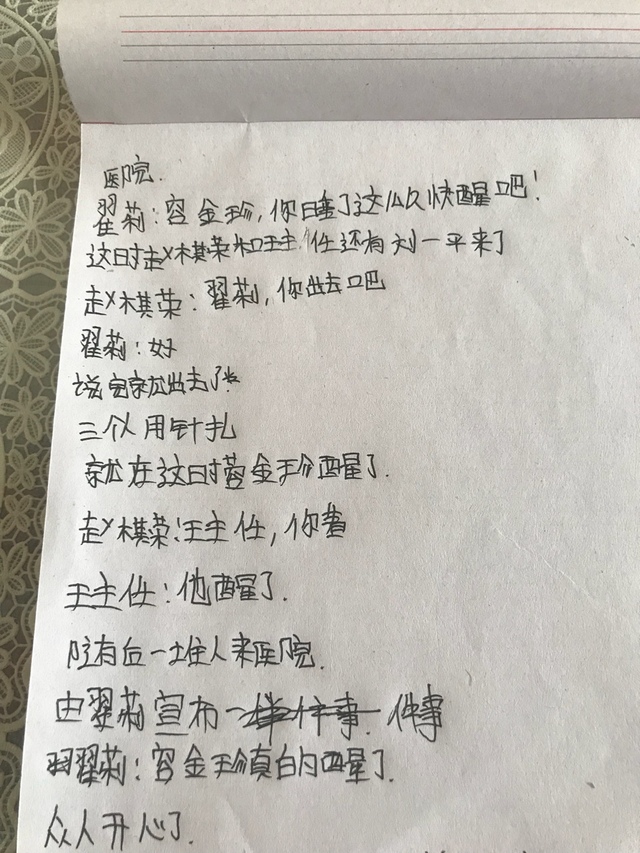 医院.
翟莉:容金珍,你睡了这么久快醒吧!
这时赵棋荣和王主任还有刘一平来了
赵棋荣:翟莉,你出去吧
翟莉:好
说完就出去了
三个人用针扎
就在这时容金珍醒了.
赵棋荣:王主任,你看
王主任:他醒了.
随后一堆人来医院.
由翟莉宣布一件事
翟莉:容金珍真的醒了.
众人开心了.